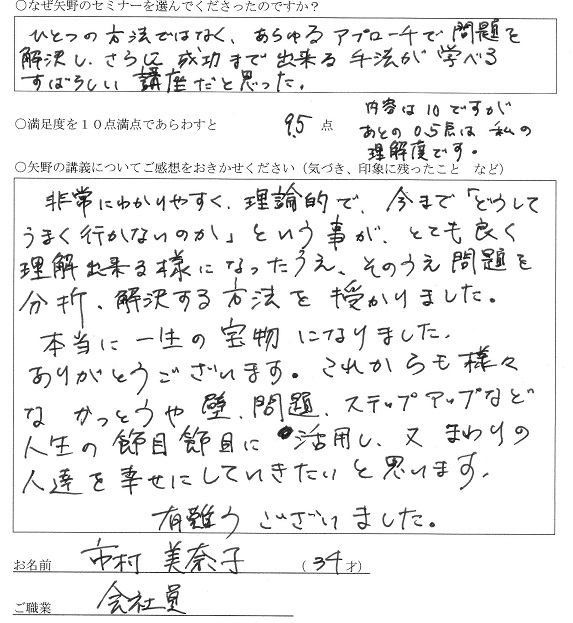 ○なぜ矢野のセミナーを選んでくださったのですか？
ひとつの方法ではなく、あらゆるアプローチで問題を
解決し、さらに成功まで出来る手法が学べる
すばらしい講座だと思った。
○満足度を１０点満点であらわすと 9.5 点
内容は10ですが
あとの0.5点は私の
理解度です。
○矢野の講義についてご感想をおきかせください（気づき、印象に残ったこと など）
非常にわかりやすく、理論的で、今まで「どうして
うまく行かないのか」という事が、とても良く
理解出来る様になったうえ、そのうえ問題を
分析、解決する方法を授かりました。
本当に一生の宝物になりました。
ありがとうございます。これからも様々
な かっとうや壁、問題、ステップアップなど
人生の節目節目に活用し、又まわりの
人達を幸せにしていきたいと思います。
有難うございました。
お名前 市村 美奈子 （34才）
ご職業 会社員